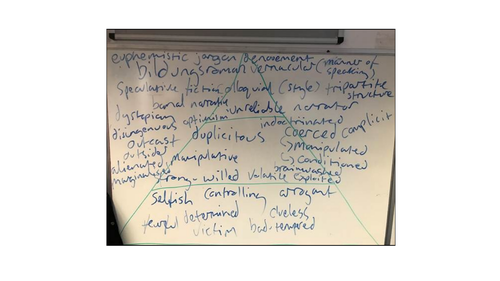 euphemistic jargon denouement
bildungsroman vernacular (manner of speaking)
speculative fiction colloquial (style) tripartite structure
banal narrative unreliable narrator
dystopian optimism indoctrinated
disingenuous duplicitous coerced complicit
outcast ↳ manipulated
outsider ↳ conditioned
alienated manipulative brainwashed
marginalised strong-willed volatile exploited
selfish controlling arrogant
fearful determined clueless
victim bad-tempered